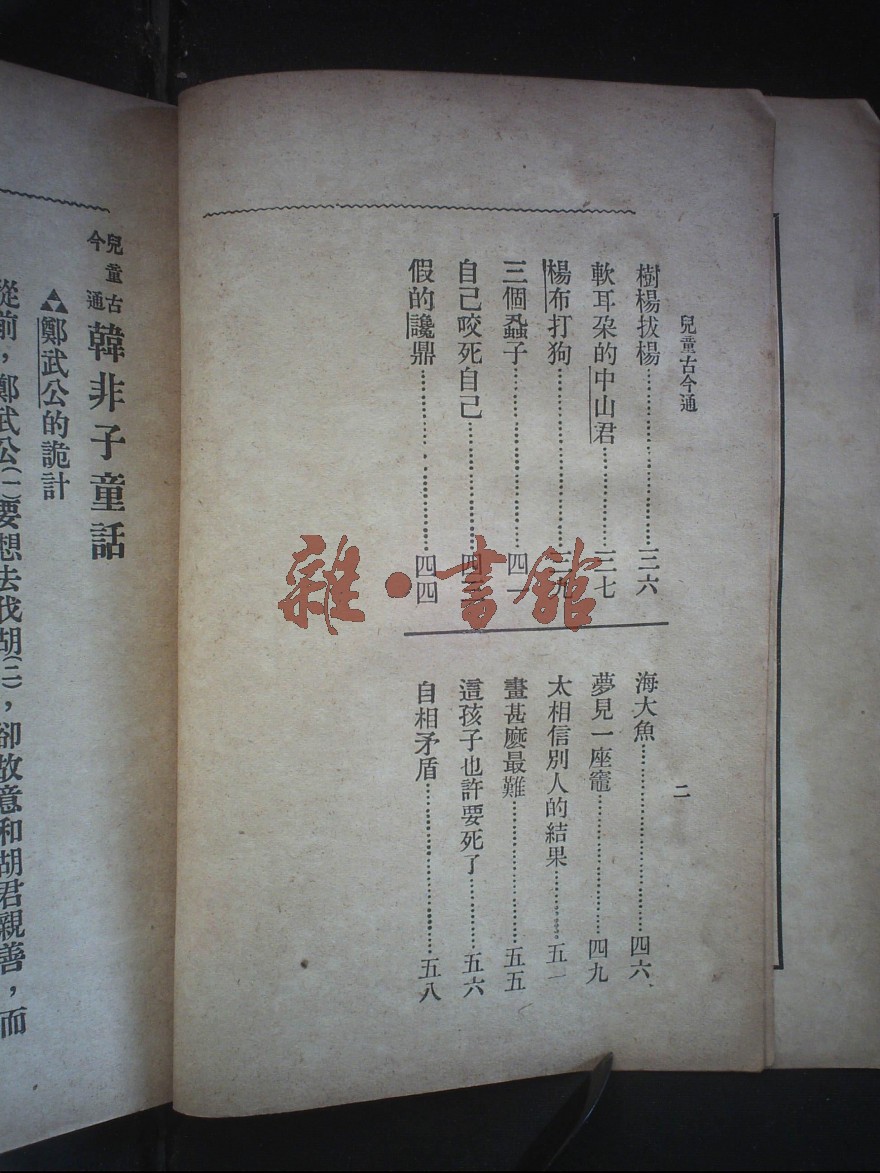 兒童古今通
樹楊拔楊……三六
軟耳朶的中山君……三七
楊布打狗……三九
三個蝨子……四一
自己咬死自己……四三
假的讒鼎……四四
海大魚……四六
夢見一座竈……四九
太相信別人的結果……五一
畫甚麼最難……五五
這孩子也許要死了……五六
自相矛盾……五八
二
兒童古今通
韓非子童話
鄭武公的詭計
從前，鄭武公(一)要想去伐胡(二)，卻故意和胡君親善，而
雜·書館